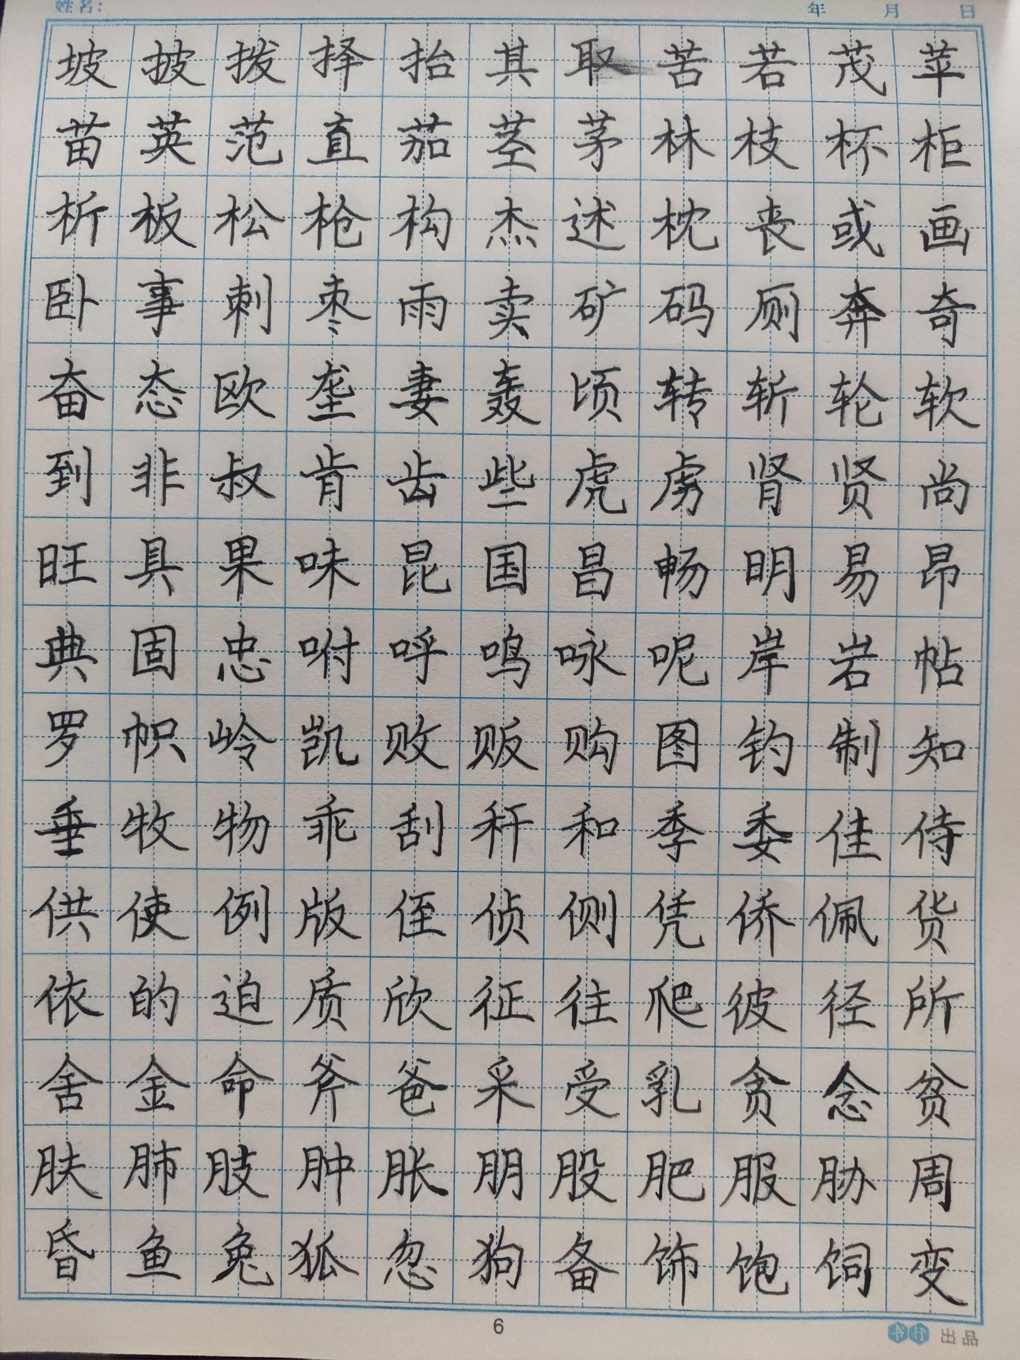 姓名: 年 月 日
坡披拨择抬其取苦若茂苹
苗英范直茄茎茅林枝杯柜
析板松枪构杰述枕丧或画
卧事刺枣雨卖矿码厕奔奇
奋态欧垄妻轰顷转斩轮软
到非叔肯齿些虎虏肾贤尚
旺具果味昆国昌畅明易昂
典固忠咐呼鸣咏呢岸岩帖
罗帜岭凯败贩购图钓制知
垂牧物乖刮秆和季委佳侍
供使例版侄侦侧凭侨佩货
依的迫质欣征往爬彼径所
舍金命斧爸采受乳贪念贫
肤肺肢肿胀朋股肥服胁周
昏鱼兔狐忽狗备饰饱饲变
6
出品